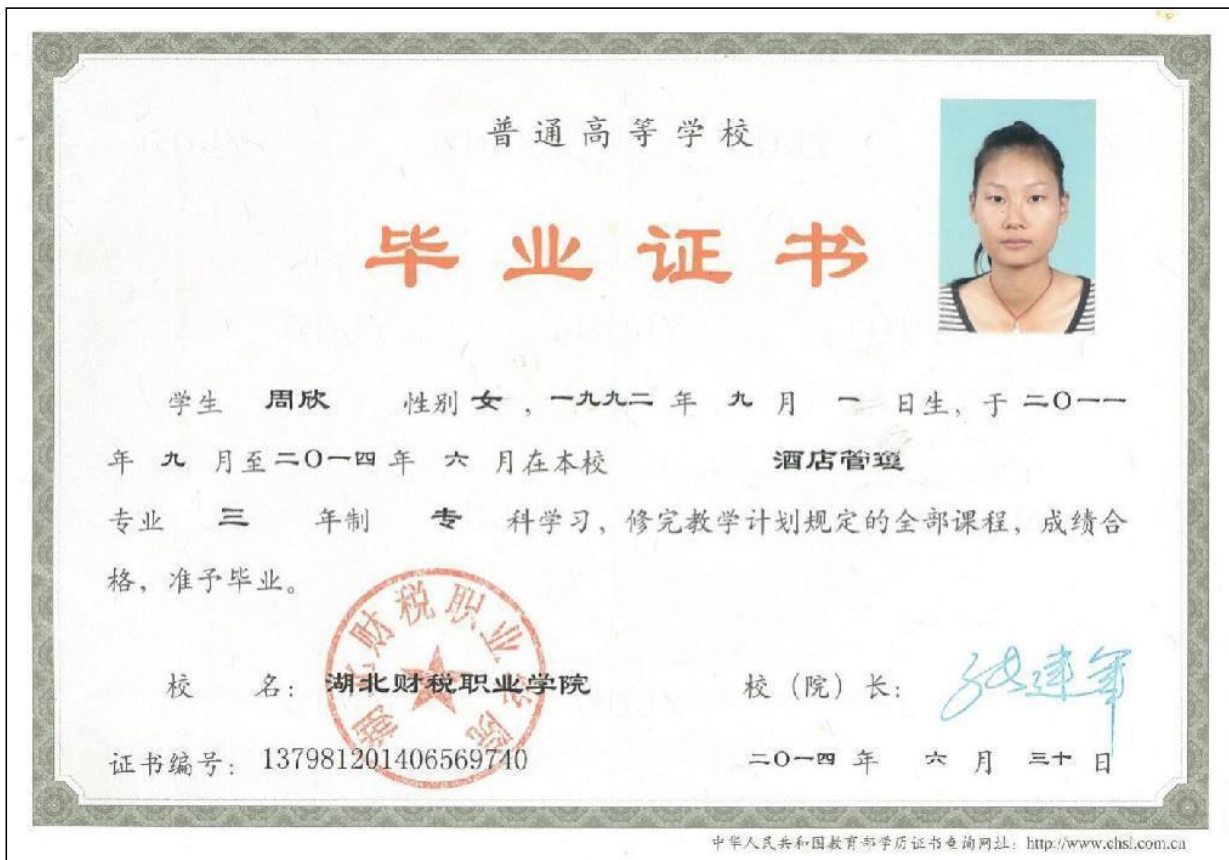 普通高等学校
毕业证书
学生 周欣 性别 女 ，一九九二 年 九 月 一 日生，于 二〇一一
年 九 月至 二〇一四 年 六 月在本校 酒店管理
专业 三 年制 专 科学习，修完教学计划规定的全部课程，成绩合
格，准予毕业。
湖北财税职业学院
校 名：湖北财税职业学院 校（院）长：张建军
证书编号：137981201406569740 二〇一四 年 六 月 三十 日
中华人民共和国教育部学历证书查询网址：http://www.chsi.com.cn